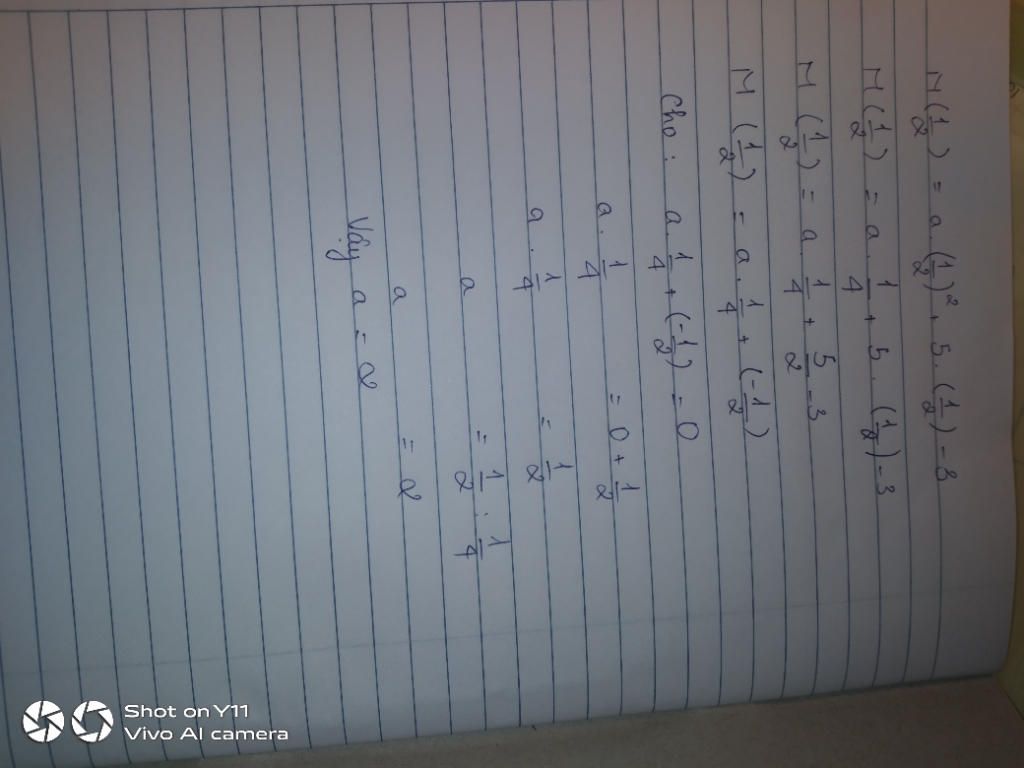 M(1/2) = a.(1/2)² + 5.(1/2) - 3
M(1/2) = a.1/4 + 5.(1/2) - 3
M(1/2) = a.1/4 + 5/2 - 3
M(1/2) = a.1/4 + (-1/2)
Cho: a.1/4 + (-1/2) = 0
a.1/4 = 0 + 1/2
a.1/4 = 1/2
a = 1/2 : 1/4
a = 2
Vậy a = 2
Shot on Y11
Vivo AI camera